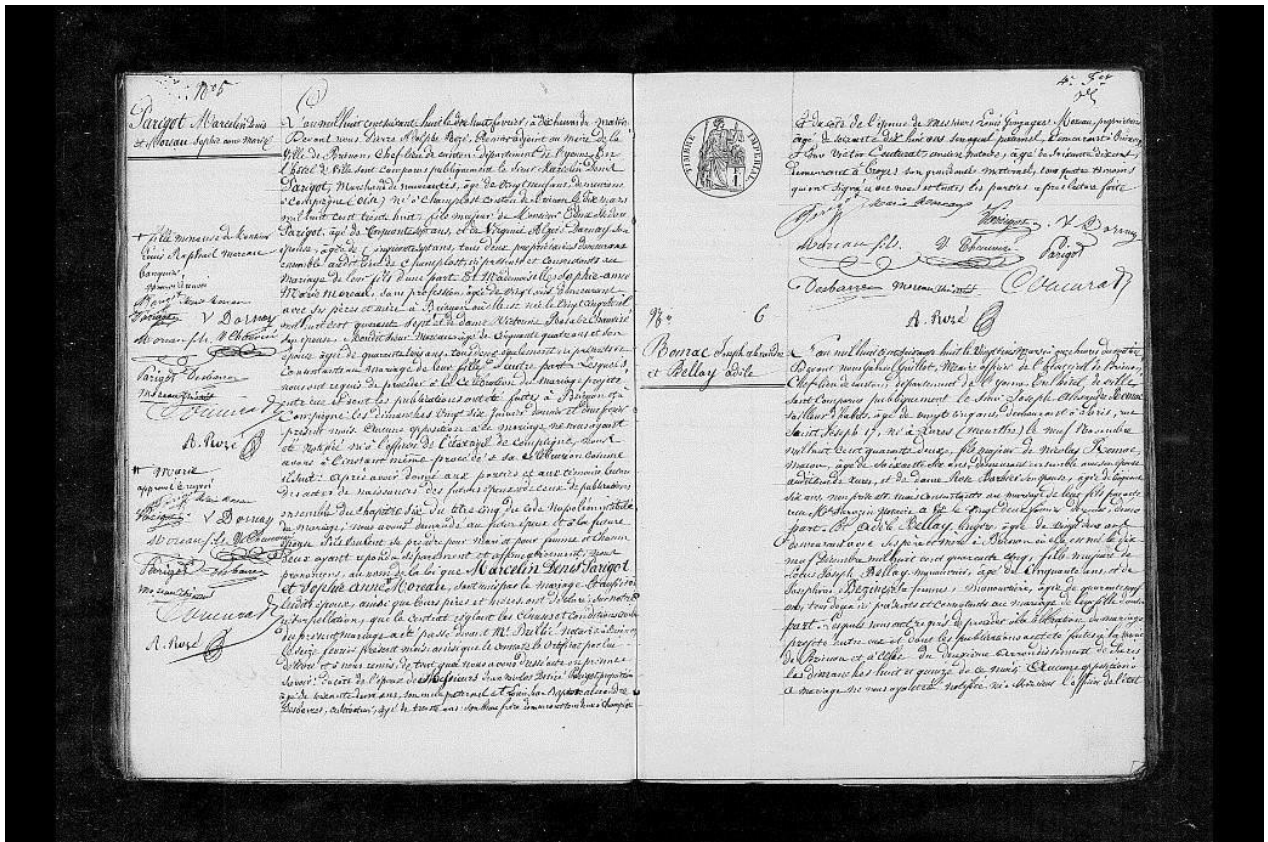 N° 5
Parigot Marcelin Denis
et Moreau Sophie anne Marie
L'an mil huit cent soixante huit le dix huit février à dix heures du matin
Devant nous Pierre Adolphe Rozé, Premier adjoint au Maire de la
Ville de Brienon, Chef lieu de canton, département de l'Yonne, En
l'hôtel de Ville sont comparus publiquement le Sieur Marcelin Denis
Parigot, Marchand de nouveautés, âgé de vingt neuf ans, demeurant
à Compiègne (oise) né à Champlost canton de Brienon le dix mars
mil huit cent trente huit, fils majeur de Monsieur Edme
Parigot, âgé de cinquante sept ans, et de Virginie Darnay son
épouse, âgée de cinquante sept ans, tous deux propriétaires demeurant
ensemble audit lieu de Champlost, ici présents et consentants au
mariage de leur fils d'une part. Et Mademoiselle Sophie anne
Marie Moreau, sans profession, âgée de vingt ans, demeurant
avec ses père et mère à Brienon où elle est née le vingt cinq avril
mil huit cent quarante sept et de dame Victoire Rosalie Chauvisé
son épouse. Mondit Sieur Moreau âgé de cinquante quatre ans et son
épouse âgée de quarante trois ans, tous deux également ici présents et
consentants au mariage de leur fille d'autre part. Lesquels
nous ont requis de procéder à la célébration du mariage projeté
entre eux et dont les publications ont été faites à Brienon et à
Compiègne les dimanches vingt six janvier dernier et deux février
présent mois. Aucune opposition à ce mariage ne nous ayant
été notifiée ni à l'officier de l'état civil de Compiègne, nous
avons à l'instant même procédé à sa célébration comme
il suit: après avoir donné aux parties et aux témoins lecture
des actes de naissances des futurs époux, de ceux de publications
ensemble du chapitre six du titre cinq du code Napoléon intitulé
du Mariage; nous avons demandé au futur époux et à la future
épouse s'ils veulent se prendre pour mari et pour femme et chacun
d'eux ayant répondu séparément et affirmativement, nous
prononçons, au nom de la loi que Marcelin Denis Parigot
et Sophie Anne Moreau, sont unis par le mariage. Et aussitôt
lesdits époux, ainsi que leurs pères et mères, ont déclaré, sur notre
interpellation, que le contrat réglant les clauses et conditions civiles
du présent mariage a été passé devant Me notaire à Brienon
le seize février présent mois, ainsi que le constate le certificat par lui
délivré et à nous remis, de tout quoi nous avons dressé acte en présence
savoir: du côté de l'époux de Messieurs Jean Nicolas Désiré Parigot propriétaire
âgé de soixante deux ans, son oncle paternel et Louis Jean Baptiste alexandre
Desbarres, cultivateur, âgé de trente ans son beau frère demeurant tous deux à Champlost
+ fille mineure de Monsieur
Louis Raphael Moreau
banquier
V Dornay
Moreau fils V Chauvisé
Parigot Desbarres
Moreau
Couturat
A. Rozé
+ Marie
approuvé le renvoi
Parigot V Dornay
Moreau fils V Chauvisé
Parigot Desbarres
Moreau
Couturat
A. Rozé
4e
TIMBRE IMPÉRIAL
1 F
Et du côté de l'épouse de Messieurs Louis Gonzague Moreau, propriétaire
âgé de soixante dix huit ans son ayeul paternel, demeurant à Brienon
et Victor Couturat, ancien notaire, âgé de soixante dix ans,
demeurant à Troyes son grand oncle maternel, tous quatre témoins
qui ont signé avec nous et toutes les parties après lecture faite
Parigot Marie Moreau
Parigot V Dornay
Moreau fils. V Chauvisé Parigot
Desbarres Moreau Couturat
A. Rozé
N° 6
Romac Joseph alexandre
et Bellay adèle
L'an mil huit cent soixante huit le vingt trois Mars à onze heures du matin
Devant nous Gabriel Guillot, Maire officier de l'état civil de Brienon,
Chef lieu de canton, département de l'Yonne, En l'hôtel de ville
sont comparus publiquement le Sieur Joseph Alexandre Romac
tailleur d'habits, âgé de vingt cinq ans, demeurant à Paris, rue
Saint Joseph 17, né à Xures (Meurthe) le neuf Novembre
mil huit cent quarante deux, fils majeur de Nicolas Romac,
maçon, âgé de soixante six ans, demeurant ensemble avec son épouse
audit lieu de Xures, et de dame Rose Barbier son épouse, âgée de cinquante
six ans, non présents mais consentants au mariage de leur fils par acte
reçu Me notaire à le vingt deux février dernier, d'une
part. Et Adèle Bellay, lingère, âgée de vingt deux ans
demeurant avec ses père et mère à Brienon où elle est née le dix
neuf Décembre mil huit cent quarante cinq, fille majeure de
Louis Joseph Bellay manouvrier, âgé de cinquante ans et de
Joséphine sa femme, manouvrière, âgée de quarante neuf
ans, tous deux ici présents et consentants au mariage de leur fille d'autre
part. Lesquels nous ont requis de procéder à la célébration du mariage
projeté entre eux et dont les publications ont été faites à la mairie
de Brienon et à celle du deuxième arrondissement de Paris
les dimanches huit et quinze de ce mois. Aucune opposition à
ce mariage ne nous ayant été notifiée, ni à Messieurs l'officier de l'état